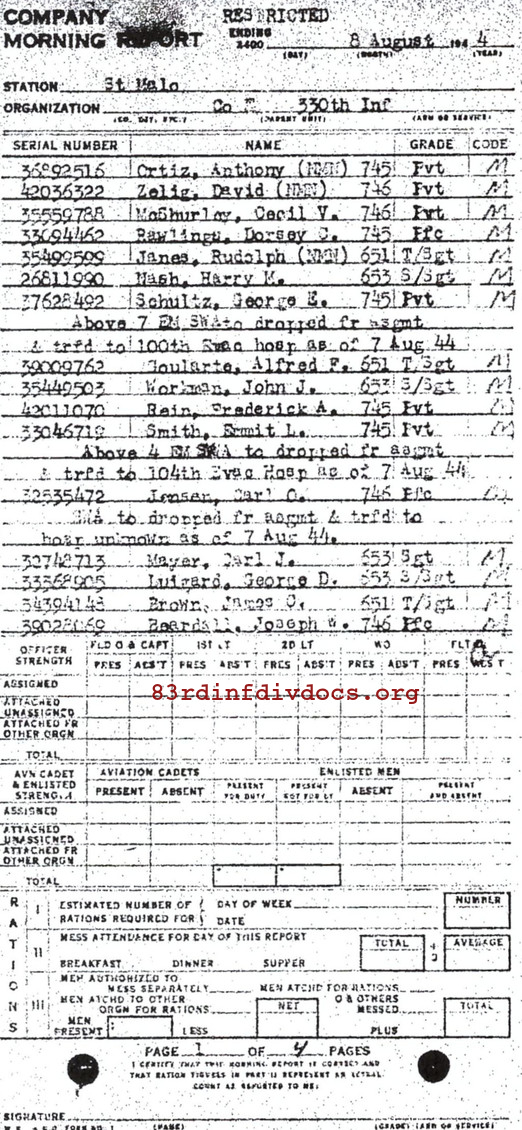 COMPANY RESTRICTED
MORNING REPORT ENDING 2400 8 August 194 4
(DAY) (MONTH) (YEAR)
STATION St Malo
ORGANIZATION Co 330th Inf
(CO., DET., ETC.) (PARENT UNIT) (ARM OR SERVICE)
SERIAL NUMBER NAME GRADE CODE
36892516 Ortiz, Anthony (NMN) 745 Pvt M
42036322 Zelig, David (NMN) 746 Pvt M
35559788 McShurley, Cecil V. 746 Pvt M
33694462 Rawlings, Dorsey C. 745 Pfc M
35499509 Janes, Rudolph (NMN) 651 T/Sgt M
26811990 Nash, Harry M. 653 S/Sgt M
37628492 Schultz, George E. 745 Pvt M
Above 7 EM SWA to dropped fr asgmt
& trfd to 100th Evac hosp as of 7 Aug 44
39009762 Goularte, Alfred F. 651 T/Sgt M
35449503 Workman, John J. 653 S/Sgt M
42011070 Rein, Frederick A. 745 Pvt M
33046719 Smith, Ermit L. 745 Pvt M
Above 4 EM SWA to dropped fr asgmt
& trfd to 104th Evac Hosp as of 7 Aug 44
32535472 Jensen, Carl O. 746 Pfc M
SWA to dropped fr asgmt & trfd to
hosp unknown as of 7 Aug 44.
32742713 Mayer, Carl J. 653 Sgt M
33368905 Luigard, George D. 653 S/Sgt M
34394143 Brown, James O. 651 T/Sgt M
Beardall, Joseph W. 746 Pfc M
OFFICER STRENGTH FLD O & CAPT 1ST LT 2D LT WO FLT O
PRES ABS'T PRES ABS'T PRES ABS'T PRES ABS'T PRES ABS'T
ASSIGNED
83rdinfdivdocs.org
ATTACHED UNASSIGNED
ATTACHED FR OTHER ORGN
TOTAL
AVN CADET & ENLISTED STRENGTH AVIATION CADETS ENLISTED MEN
PRESENT ABSENT PRESENT FOR DUTY PRESENT NOT FOR DY ABSENT PRESENT AND ABSENT
ASSIGNED
ATTACHED UNASSIGNED
ATTACHED FR OTHER ORGN
TOTAL
RATIONS
I ESTIMATED NUMBER OF RATIONS REQUIRED FOR DAY OF WEEK DATE NUMBER
II MESS ATTENDANCE FOR DAY OF THIS REPORT TOTAL ÷ 3 AVERAGE
BREAKFAST DINNER SUPPER
III MEN AUTHORIZED TO MESS SEPARATELY MEN ATCHD FOR RATIONS
MEN ATCHD TO OTHER ORGN FOR RATIONS NET O & OTHERS MESSED TOTAL
MEN PRESENT LESS PLUS
PAGE 1 OF 4 PAGES
I CERTIFY THAT THIS MORNING REPORT IS CORRECT AND
THAT RATION FIGURES IN PART II REPRESENT AN ACTUAL
COUNT AS REPORTED TO ME:
SIGNATURE
FORM NO. 1 (NAME) (GRADE) (ARM OR SERVICE)